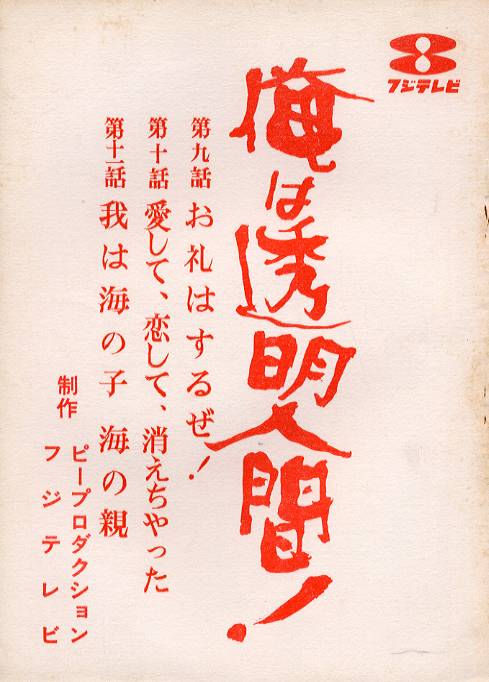 フジテレビ
俺は透明人間!
第九話 お礼はするぜ!
第十話 愛して、恋して、消えちゃった
第十一話 我は海の子 海の親
制作
ピープロダクション
フジテレビ